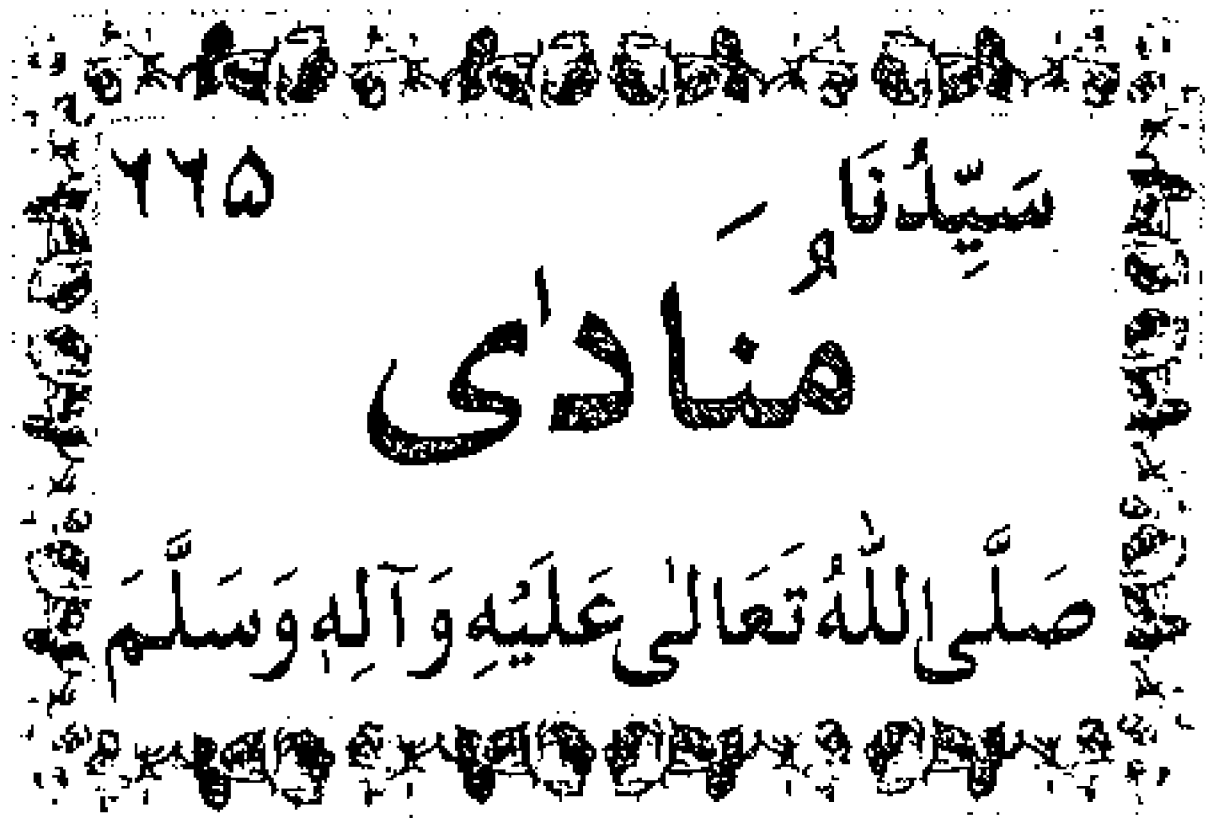 سَيِّدُنَا ۶۶۵
مُنَادٰى
صَلَّى اللّٰهُ تَعَالٰى عَلَيْهِ وَآلِهٖ وَسَلَّمَ